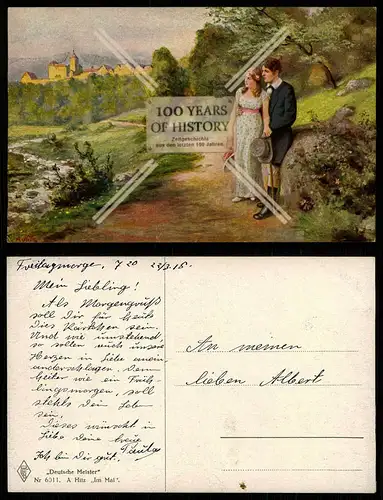 100 YEARS
OF HISTORY
Zeitgeschichte
aus den letzten 100 Jahren
Freitagmorge, 7 20
Mein Liebling!
Als Morgengruß
soll Dir für heute
Dies Kärtchen sein.
Und wie umstehend
so sollen auch unsere
Herzen in Liebe anein-
anderschlagen. Denn
heiter wie ein Früh-
lingsmorgen, soll
stehts Dein Leb
sein.
Dieses wünscht in
Liebe Deine treue
Hab bin Dir gut.
An meinen
lieben Albert
"Deutsche Meister"
Nr 6011. A Hitz "Im Mai".